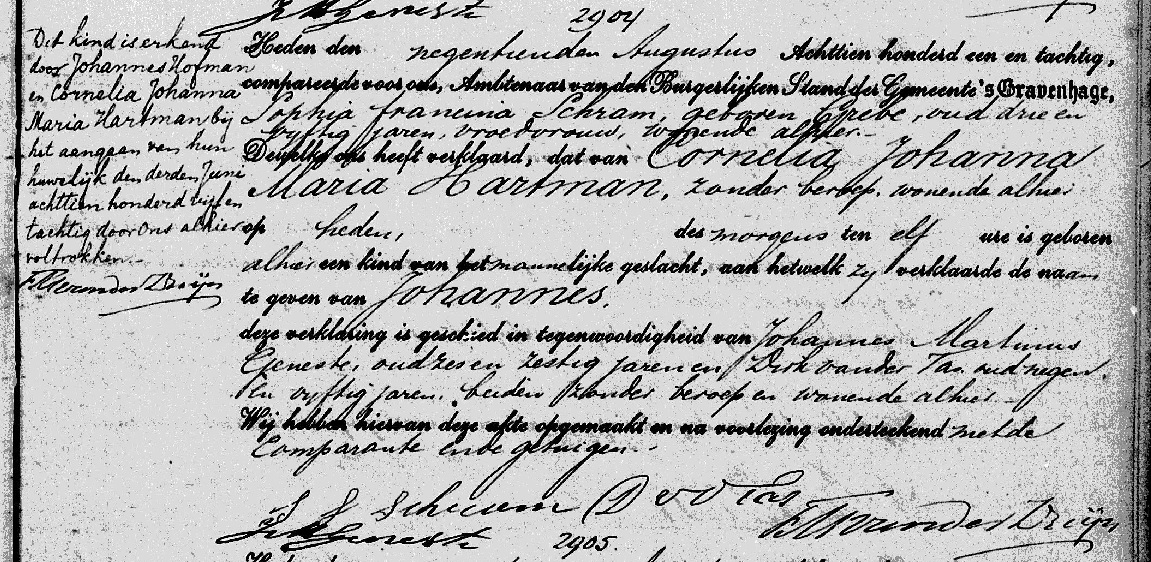 2904
Dit kind is erkend
door Johannes Hofman
en Cornelia Johanna
Maria Hartman bij
het aangaan van hun
huwelijk den derden Juni
achttien honderd vijf en
tachtig door ons alhier
voltrokken.
Heden den negentienden Augustus Achttien honderd een en tachtig,
compareerde voor ons, Ambtenaar van den Burgerlijken Stand der Gemeente 's Gravenhage,
Sophia francina Schram, geboren Greve, oud drie en
vyftig jaren, vroedvrouw, wonende alhier.-
Dewelke ons heeft verklaard, dat van Cornelia Johanna
Maria Hartman, zonder beroep, wonende alhier
op heden, des morgens ten elf ure is geboren
alhier een kind van het mannelijke geslacht, aan hetwelk zy verklaarde de naam
te geven van Johannes.
deze verklaring is geschied in tegenwoordigheid van Johannes Martinus
Geneste, oud zes en zestig jaren en Dirk van der Tas, oud negen
en vyftig jaren, beiden zonder beroep en wonende alhier.-
Wij hebben hiervan deze akte opgemaakt en na voorlezing onderteekend met de
Comparante en de getuigen.-
D v d Tas
2905.